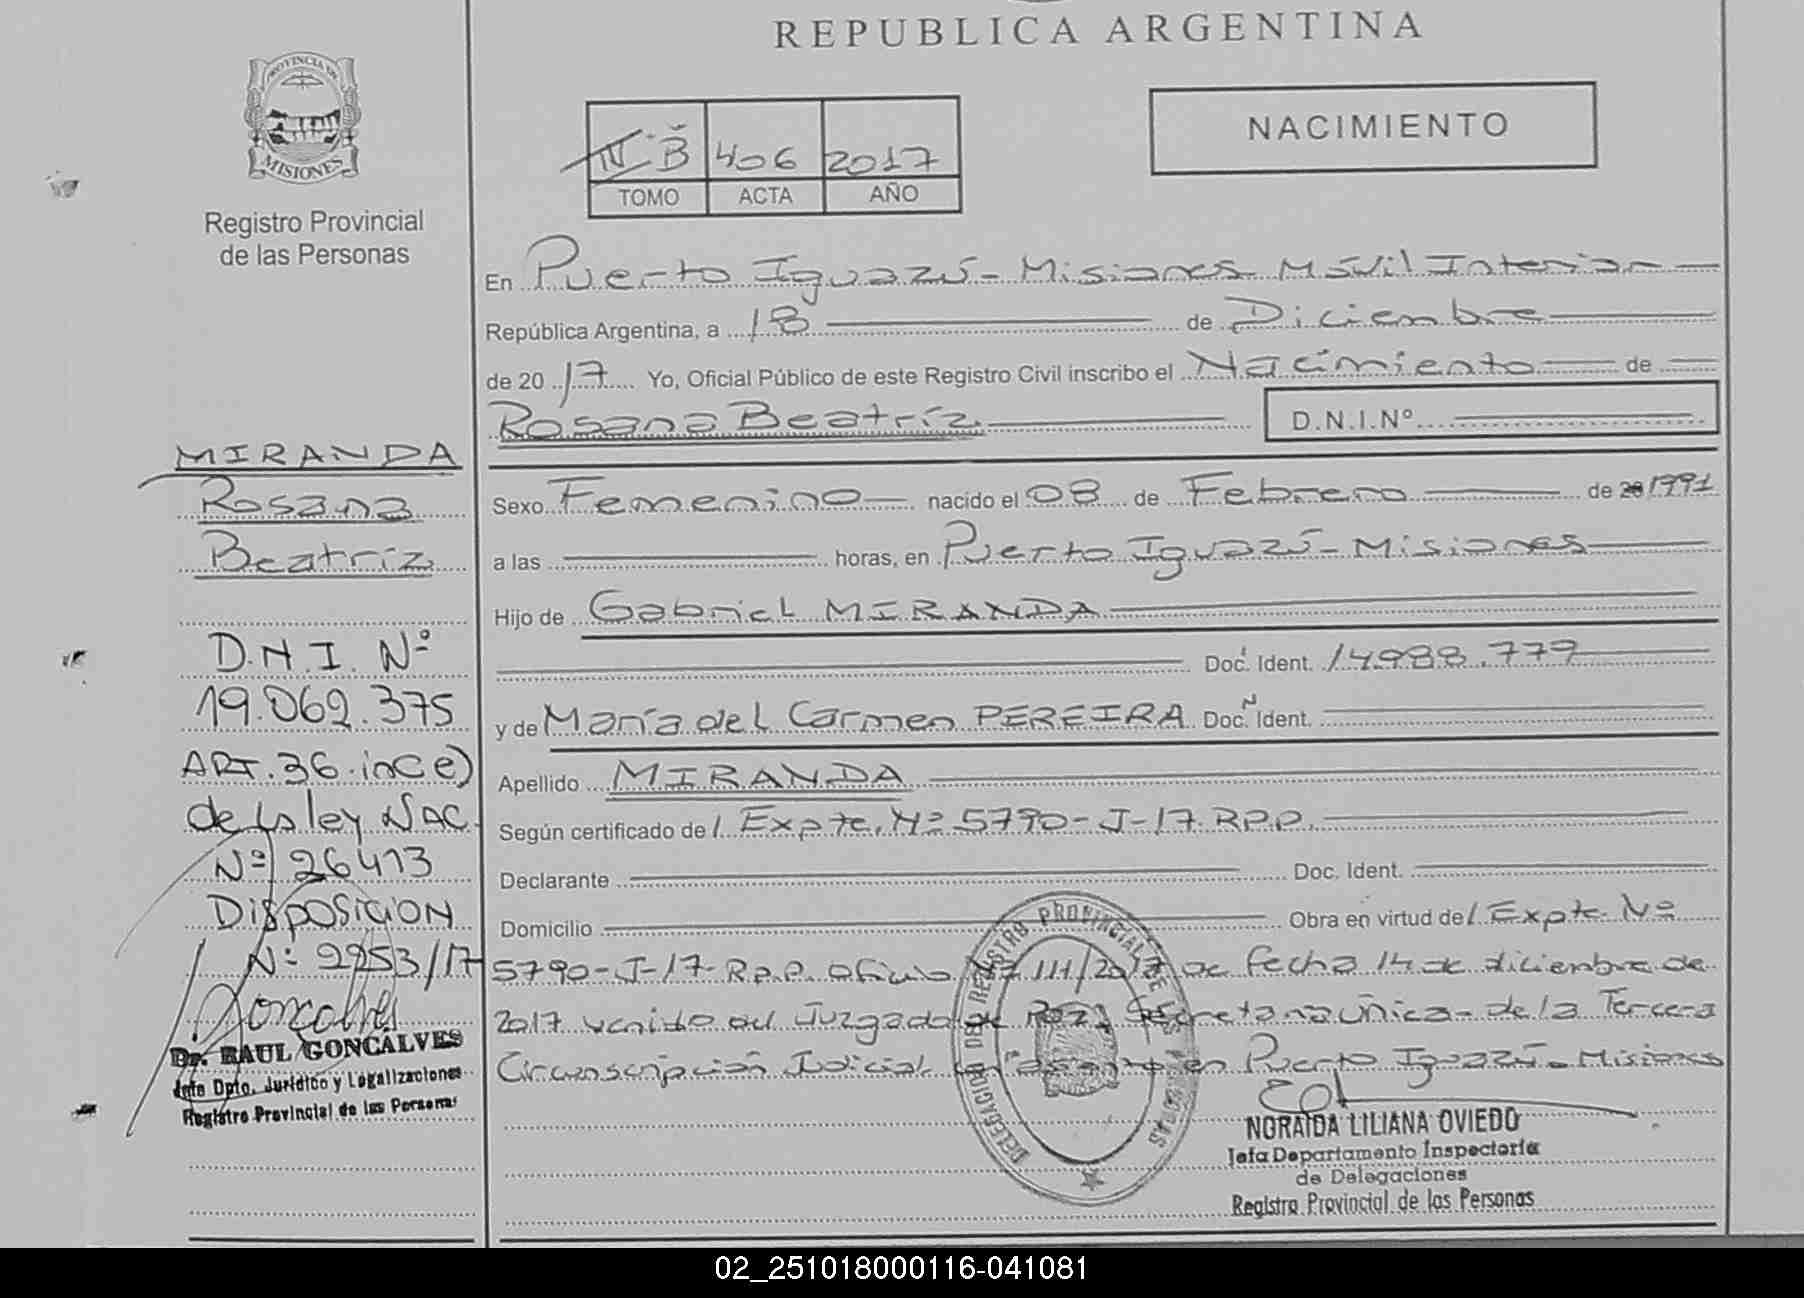 REPUBLICA ARGENTINA
PROVINCIA DE
MISIONES
Registro Provincial
de las Personas
B 406 2017
TOMO ACTA AÑO
NACIMIENTO
En Puerto Iguazú - Misiones Móvil Interior
República Argentina, a 18 de Diciembre
de 2017 Yo, Oficial Público de este Registro Civil inscribo el Nacimiento de
Rosana Beatríz D.N.I.Nº
Sexo Femenino nacido el 08 de Febrero de 1991
a las horas, en Puerto Iguazú - Misiones
Hijo de Gabriel MIRANDA
Doc. Ident. 14.988.779
y de María del Carmen PEREIRA Doc. Ident.
Apellido MIRANDA
Según certificado del Expte. Nº 5790-J-17 R.P.P.
Declarante Doc. Ident.
Domicilio Obra en virtud del Expte Nº
5790-J-17-R.P.P. Oficio 111/2017 de fecha 14 de diciembre de
2017 venido del Juzgado de Paz, Secretaria Única - de la Tercera
Circunscripción Judicial con asiento en Puerto Iguazú - Misiones
MIRANDA
Rosana
Beatríz
D.N.I. Nº
19.062.375
ART. 36 inc e)
de la ley NAC.
Nº 26413
DISPOSICION
Nº 2253/17
Dr. RAUL GONCALVES
Jefe Dpto. Jurídico y Legalizaciones
Registro Provincial de las Personas
DELEGACION DEL REGISTRO PROVINCIAL DE LAS PERSONAS
NORAIDA LILIANA OVIEDO
Jefa Departamento Inspectoría
de Delegaciones
Registro Provincial de las Personas
02_251018000116-041081